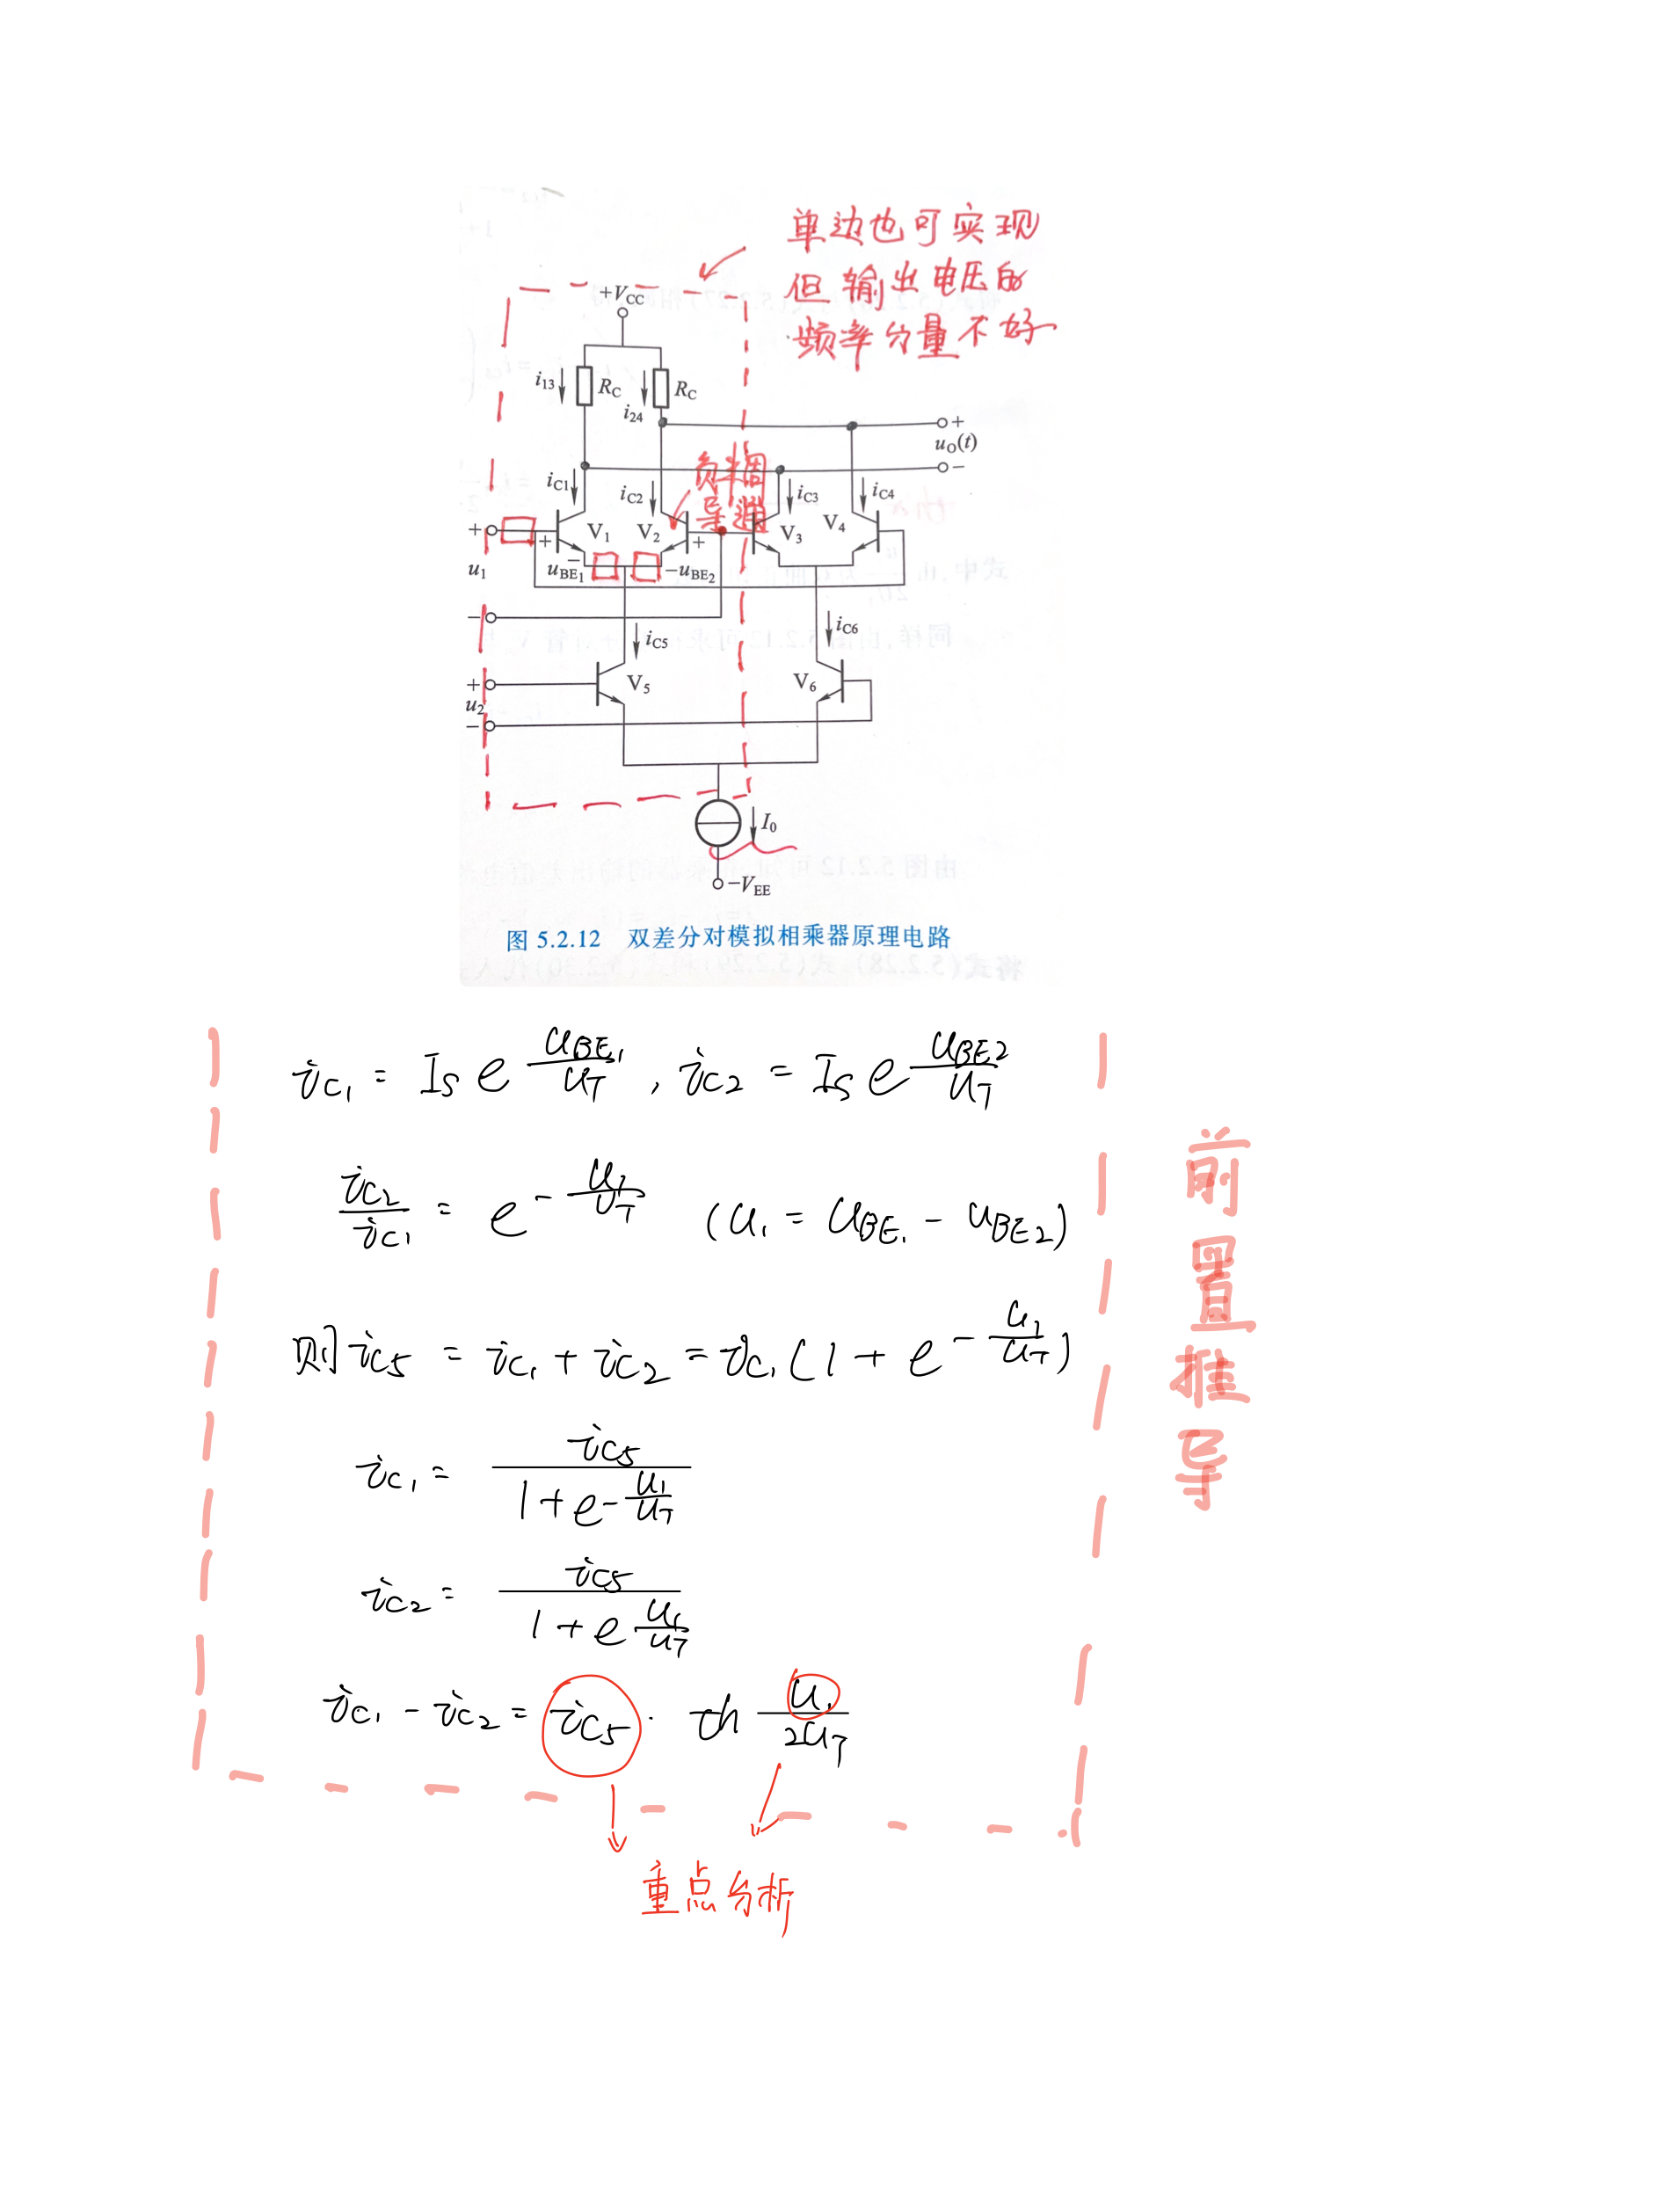 单边也可实现
但输出电压的
频率分量不好
+V_CC
i_13 R_C R_C
i_24
+
u_O(t)
−
负半周
导通
i_C1 i_C2 i_C3 i_C4
+ V_1 V_2 V_3 V_4
+ − +
u_1 u_BE1 −u_BE2
−
i_C5 i_C6
+ V_5 V_6
u_2
−
I_0
−V_EE
图 5.2.12 双差分对模拟相乘器原理电路
i_C1 = I_S e^{u_BE1/u_T}, i_C2 = I_S e^{u_BE2/u_T}
i_C2/i_C1 = e^{−u_1/u_T} (u_1 = u_BE1 − u_BE2)
则 i_C5 = i_C1 + i_C2 = i_C1 (1 + e^{−u_1/u_T})
i_C1 = i_C5/(1+e^{−u_1/u_T})
i_C2 = i_C5/(1+e^{u_1/u_T})
i_C1 − i_C2 = i_C5 · th u_1/2u_T
重点分析
前置推导